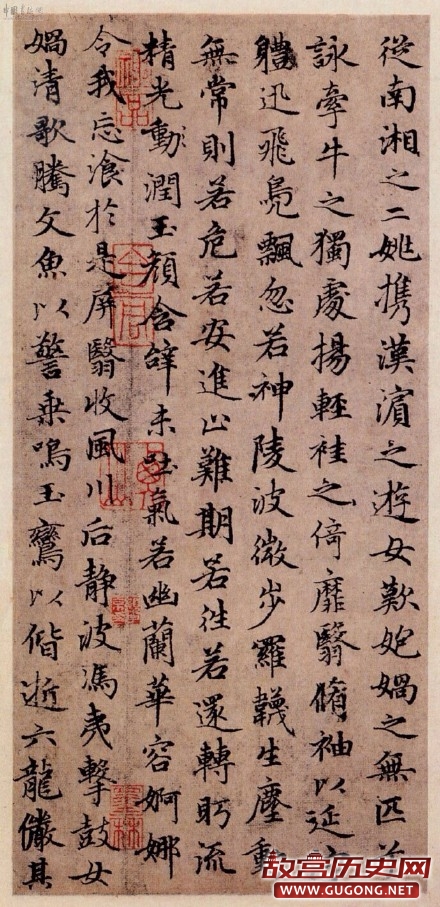 從南湘之二姚携漢濱之遊女歎媧之無匹
詠牽牛之獨處揚輕袿之倚靡翳脩袖以延
軆迅飛鳧飄忽若神陵波微步羅韈生塵動
無常則若危若安進止難期若往若還轉眄流
精光動潤玉顏含辝未吐氣若幽蘭華容婀娜
令我忘飡於是屏翳收風川后静波馮夷擊鼓女
媧清歌騰文魚以警乗鳴玉鸞以偕逝六龍儼其
故宫历史网
www.GUGONG.NET